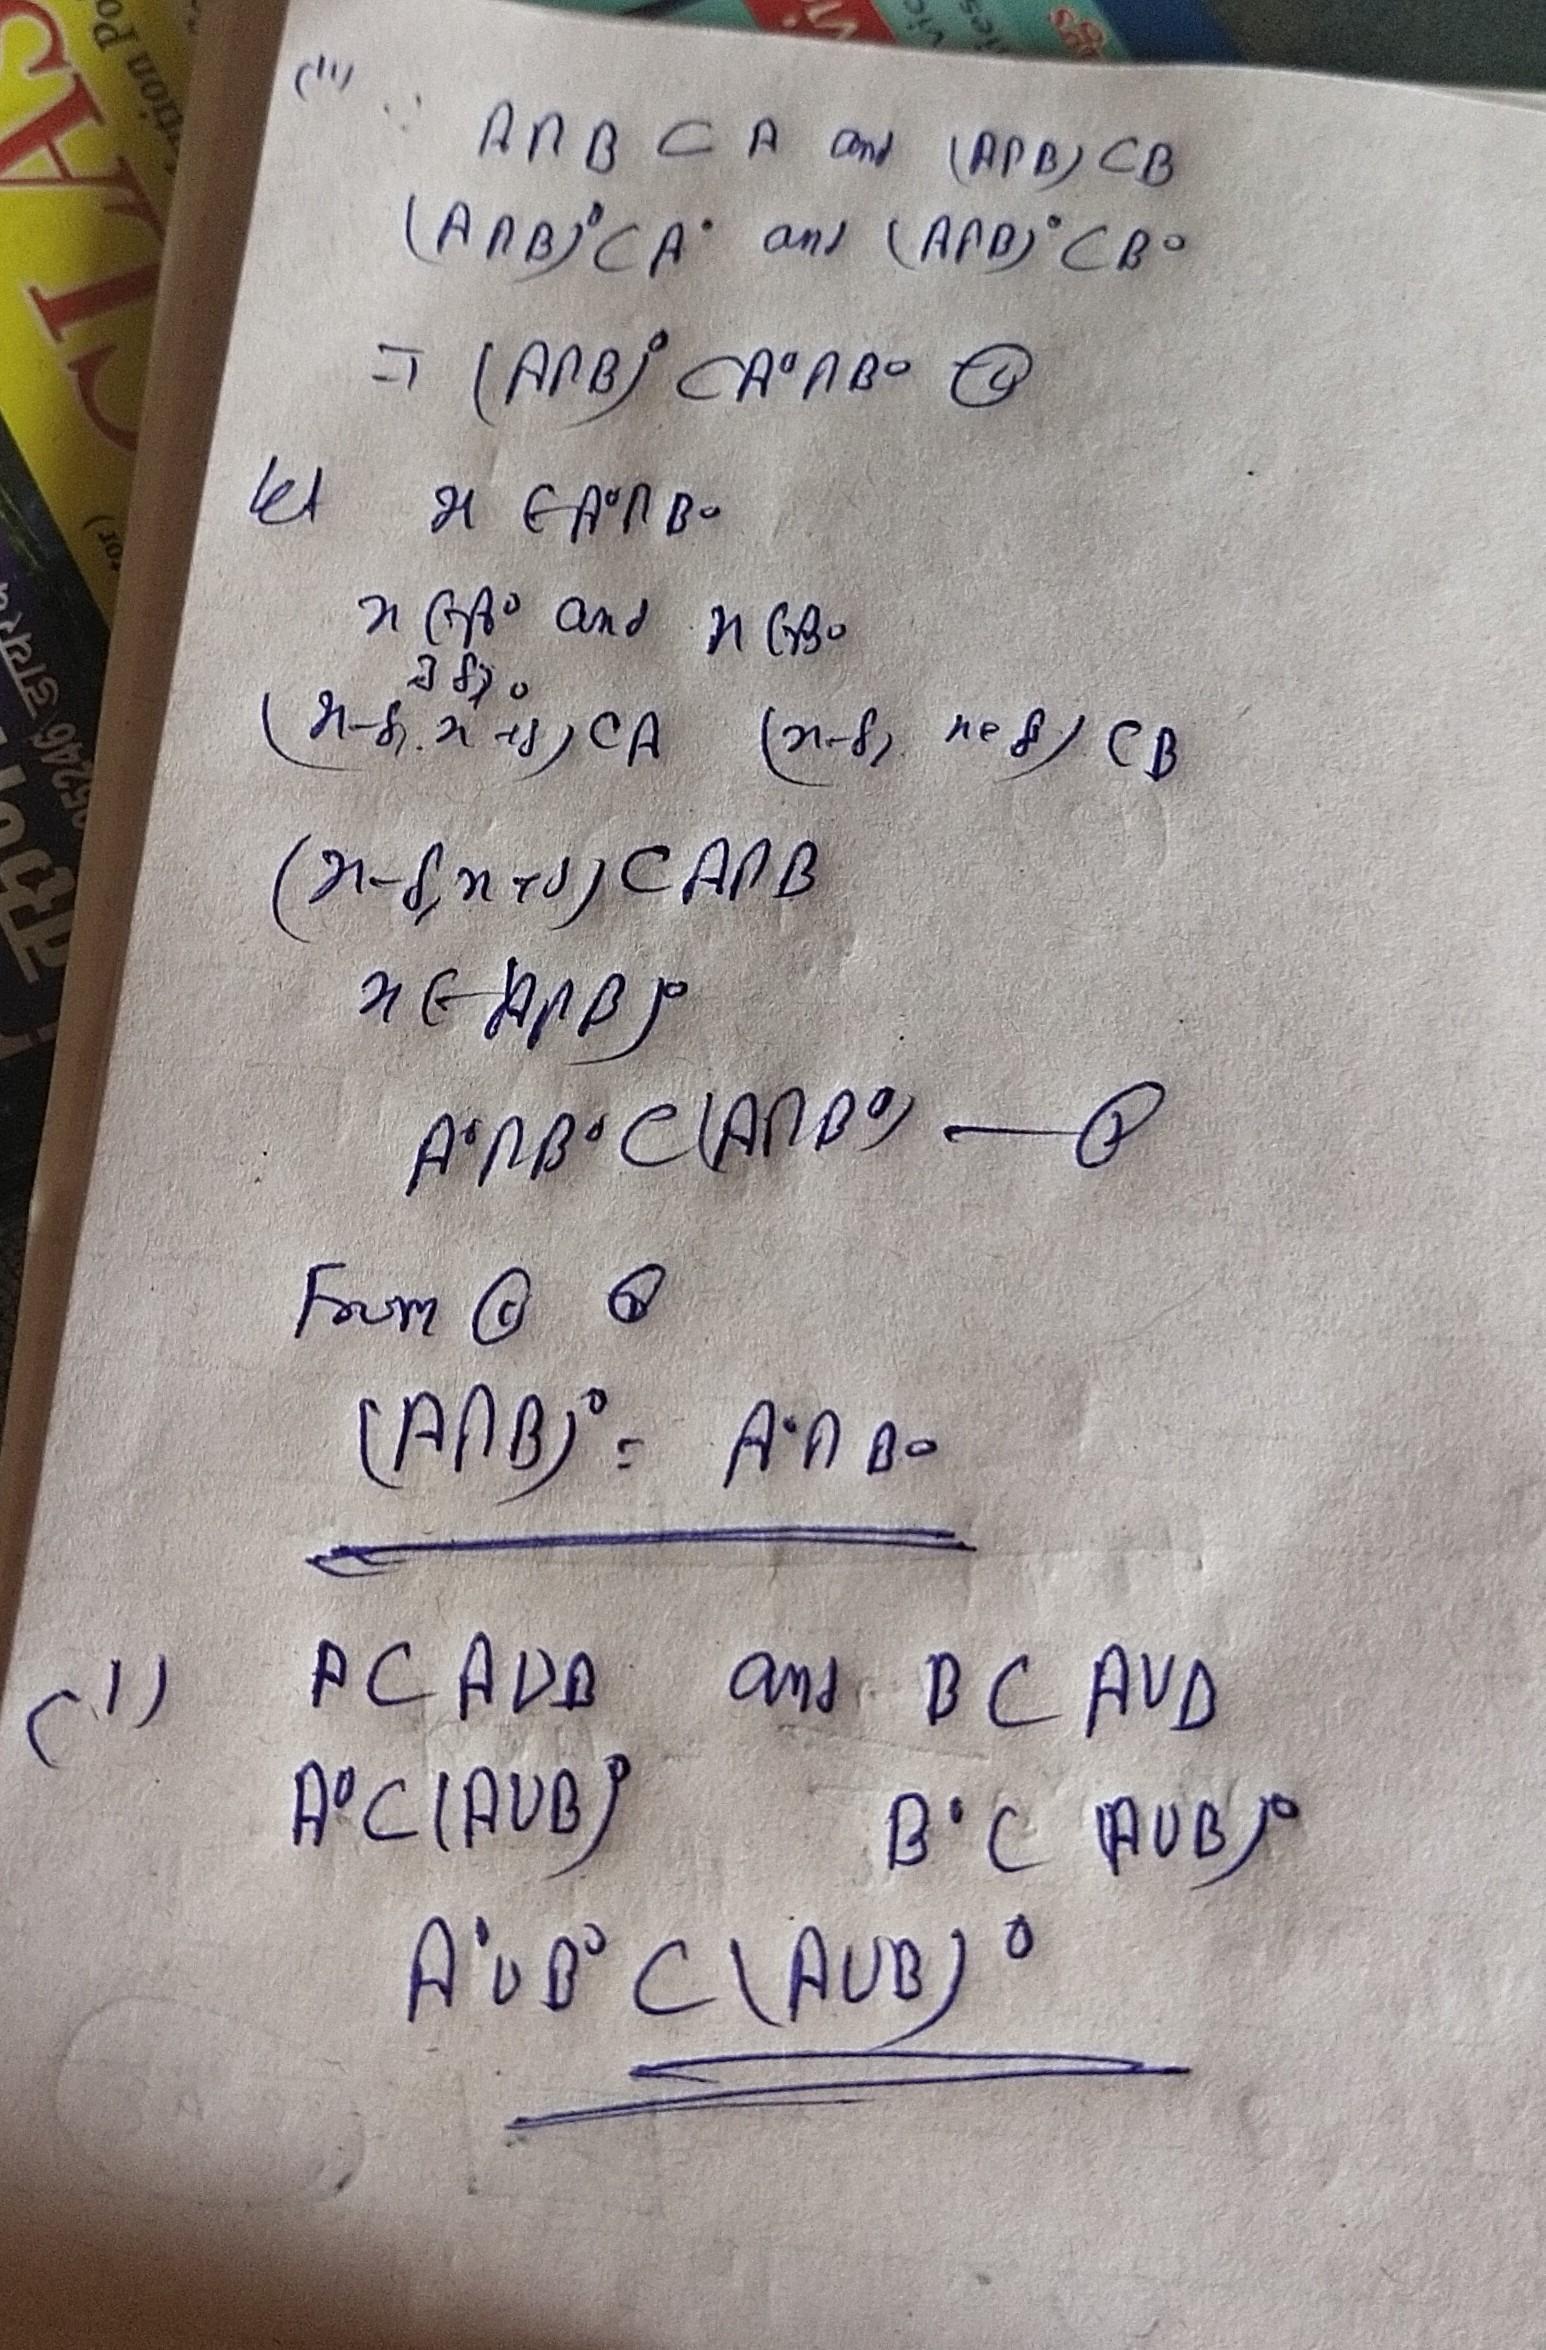 (11) ∴ A∩B ⊂ A and (A∩B) ⊂B
(A∩B)°⊂A° and (A∩B)°⊂B°
⇒ (A∩B)°⊂A°∩B° ①
let x ∈A°∩B°
x∈A° and x∈B°
∃ δ>0
(x-δ, x+δ)⊂A (x-δ, x+δ) ⊂B
(x-δ, x+δ)⊂A∩B
x∈(A∩B)°
A°∩B°⊂(A∩B°) — ②
From ① ②
(A∩B)° = A°∩B°
(1) A⊂A∪B and B⊂A∪B
A°⊂(A∪B)° B°⊂(A∪B)°
A°∪B°⊂(A∪B)°